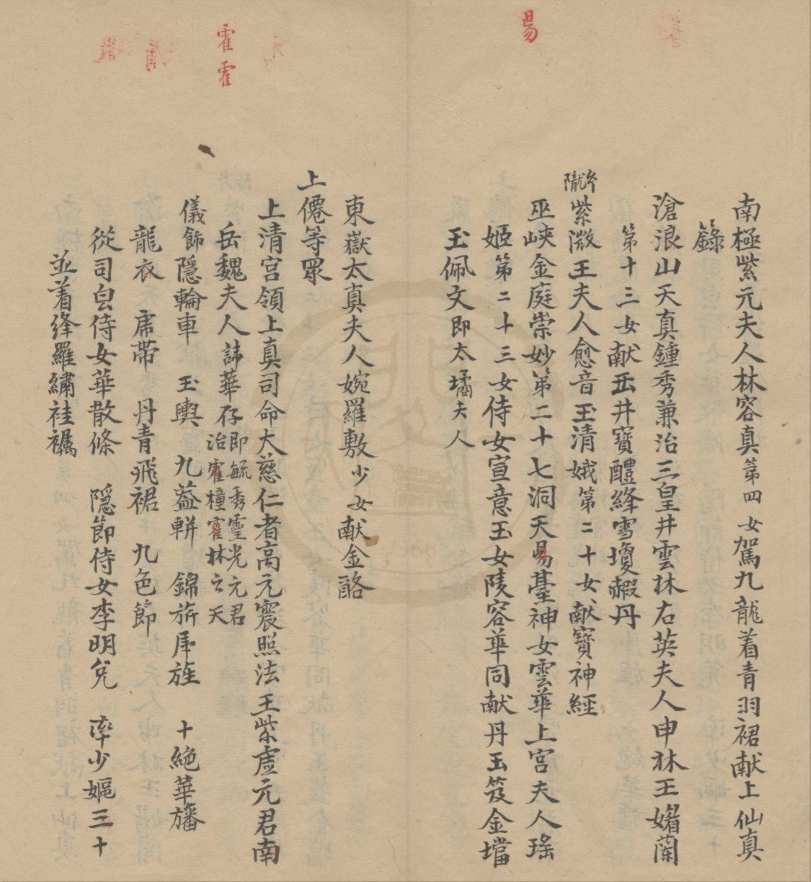 南極紫元夫人林容真第四女駕九龍着青羽裙献上仙真
錄
滄浪山天真鍾秀兼治三皇井雲林右英夫人申林王媚蘭
第十三女献玉井寶醴絳雪瓊葭丹
隴紫微王夫人愈音玉清娥第二十女献寶神經
巫峽金庭崇妙第二十七洞天昜臺神女雲華上宮夫人瑤
姬第二十三女侍女宣意玉女陵容華同献丹玉笈金璫
玉佩文即太墧夫人
昜
東嶽太真夫人婉羅敷少女献金酪
上僊等眾
上清宮領上真司命大慈仁者高元震照法王紫虛元君南
岳魏夫人諱華存即毓秀靈光元君治霍橦霍林之天
儀飾隱輪車 玉輿 九蓋軿 錦旂尾旌 十絕華旛
龍衣 虎帶 丹青飛裙 九色節
從司皀侍女華散條 隱節侍女李明兊 率少嫗三十
並着絳羅繡袿襡
霍霍